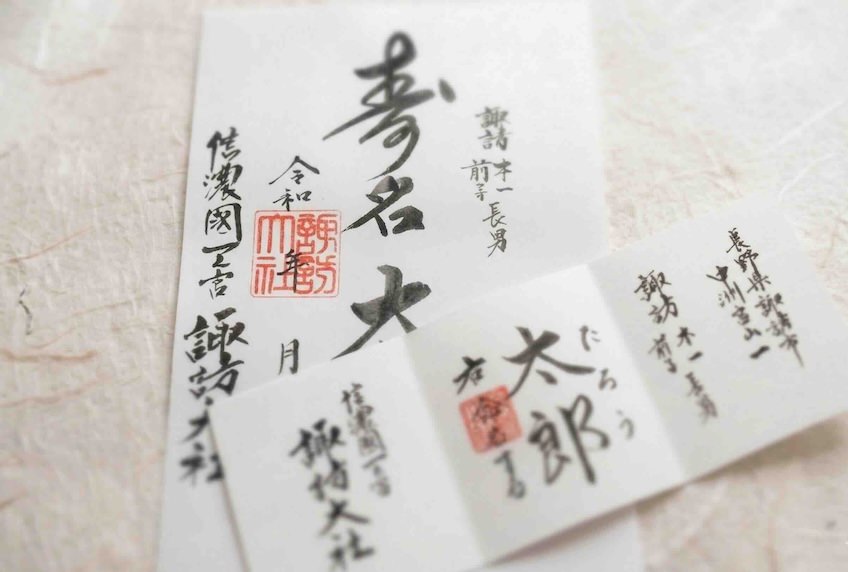 諏訪 本一
前子 長男
寿名 太
令和 年 月
諏訪大社
信濃國一之宮 諏訪大社
長野県諏訪市
中洲宮山一
諏訪 本一 長男
前子
たろう
太郎
右命名する
信濃國一之宮
諏訪大社